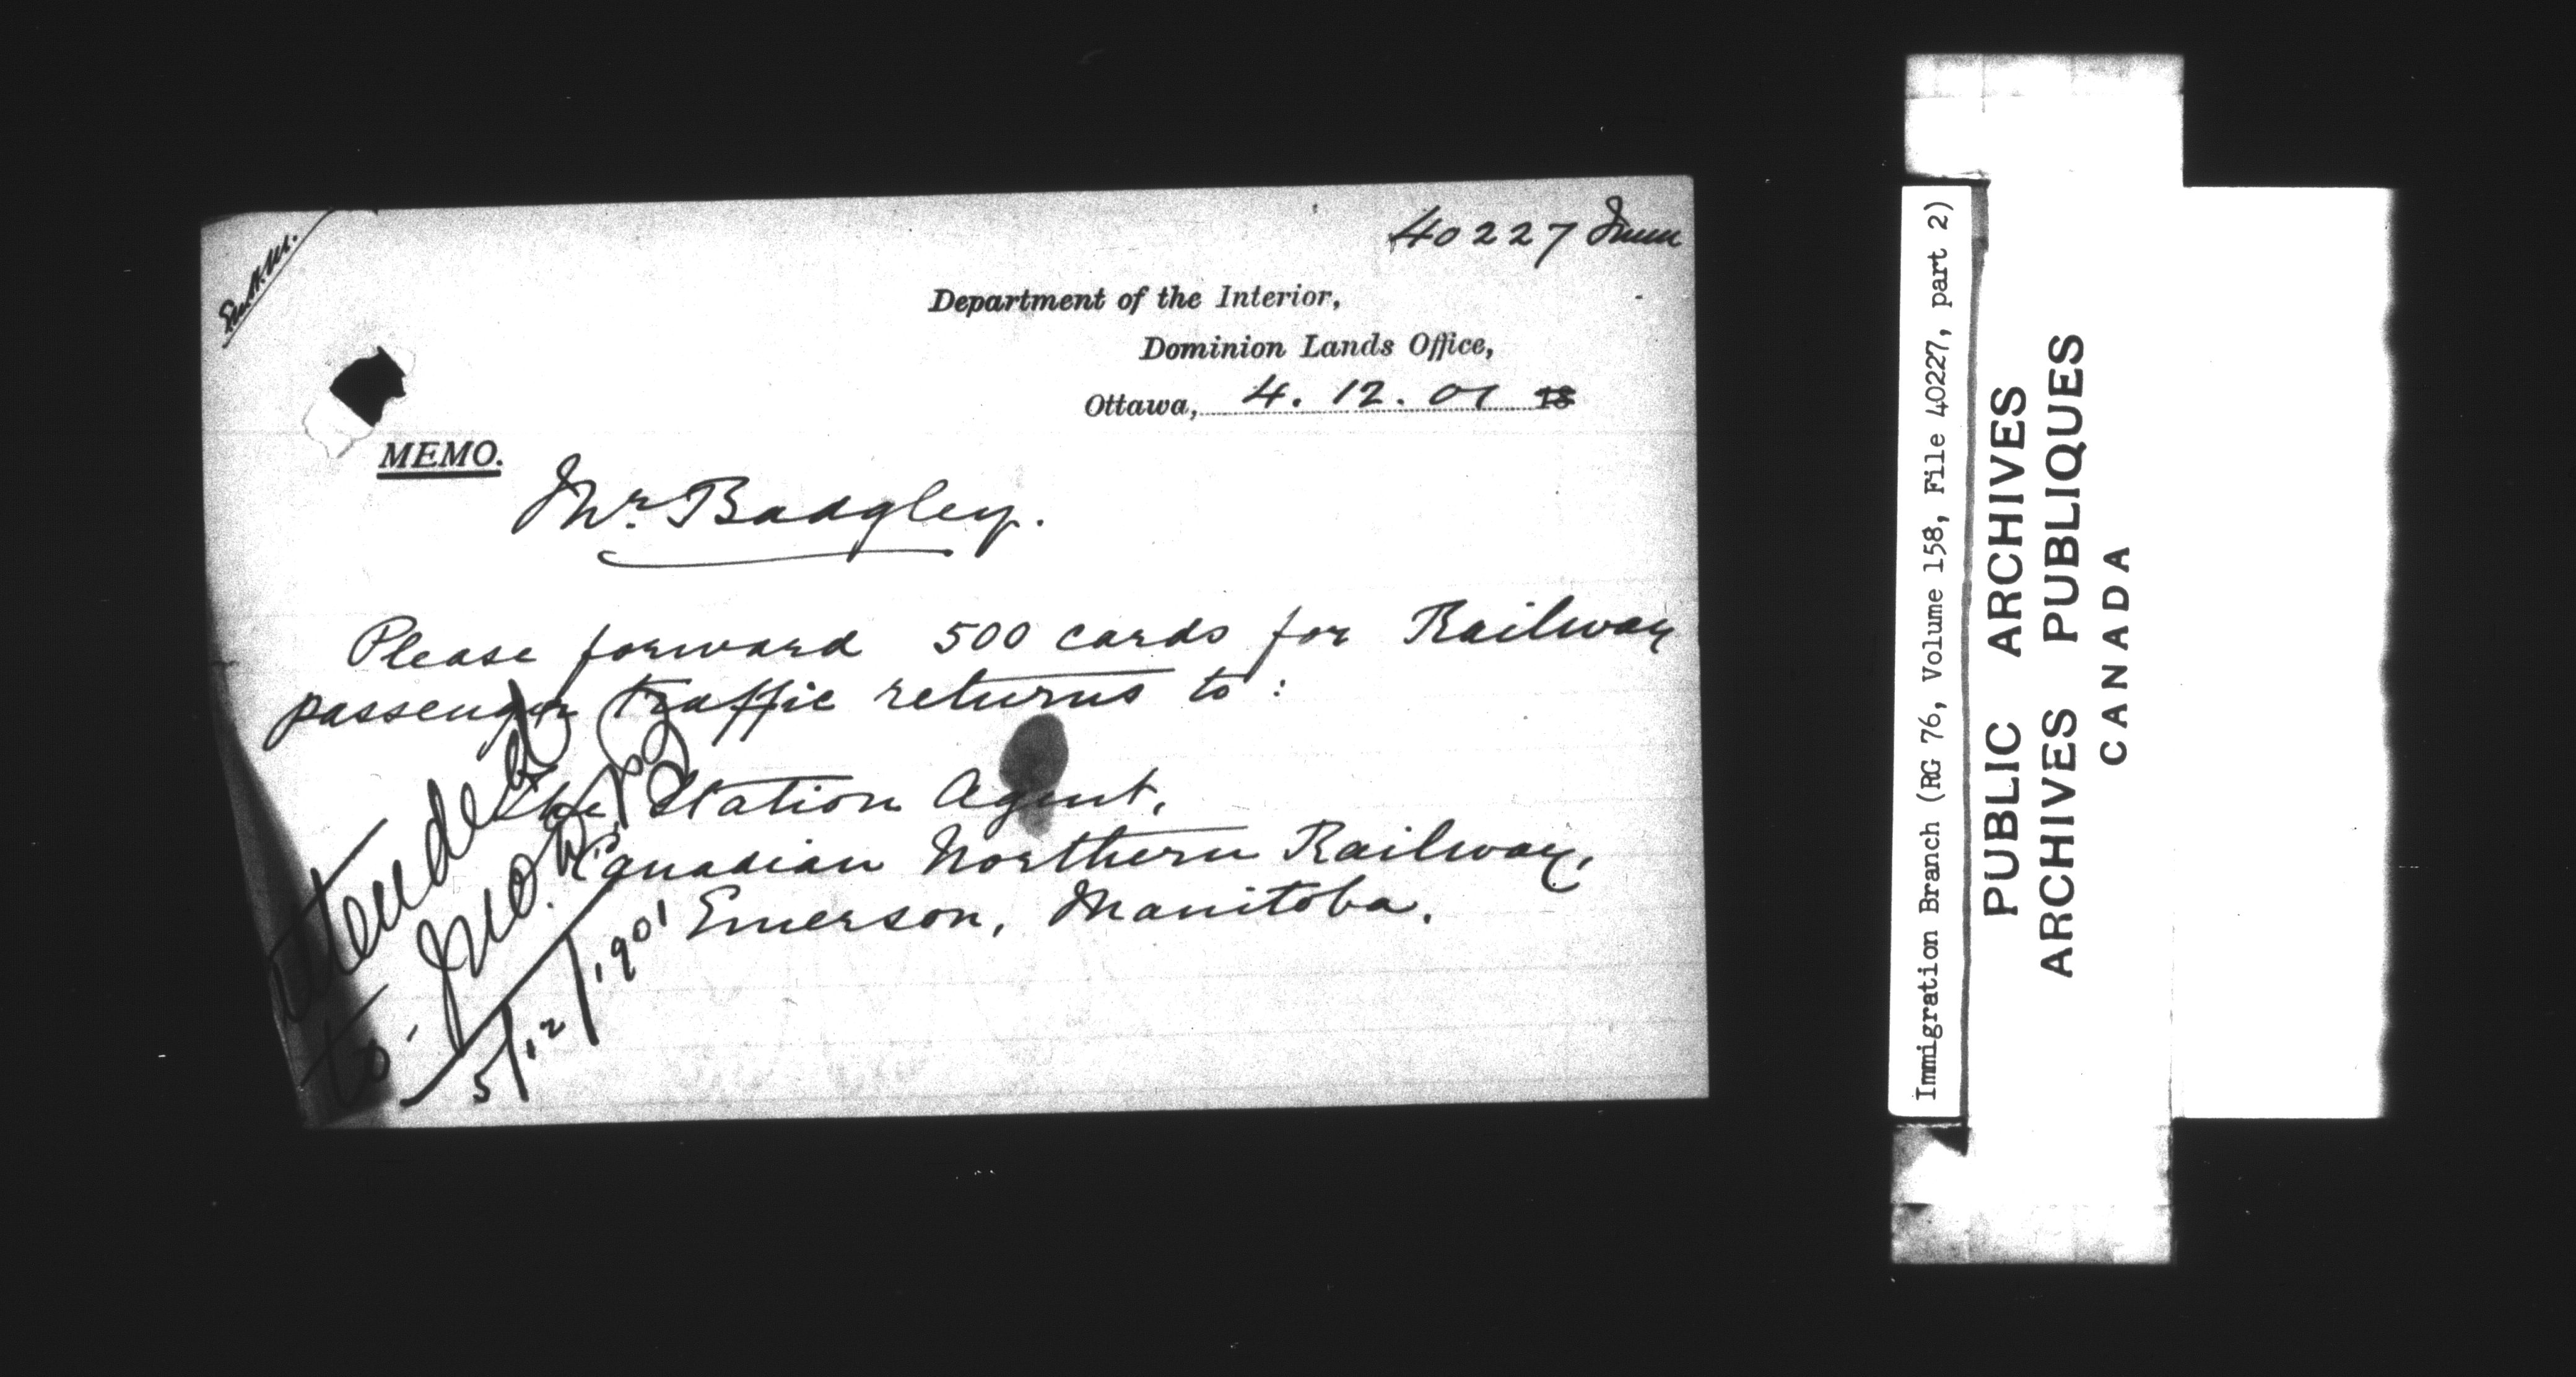 40227 Imm
Department of the Interior,
Dominion Lands Office,
Ottawa, 4. 12. 01 18
MEMO.
Mr. Badgley.
Please forward 500 cards for Railway
passenger traffic returns to:
The Station Agent,
Canadian Northern Railway,
Emerson, Manitoba.
attended
to
5/12/1901
Immigration Branch (RG 76, Volume 158, File 40227, part 2)
PUBLIC ARCHIVES
ARCHIVES PUBLIQUES
CANADA